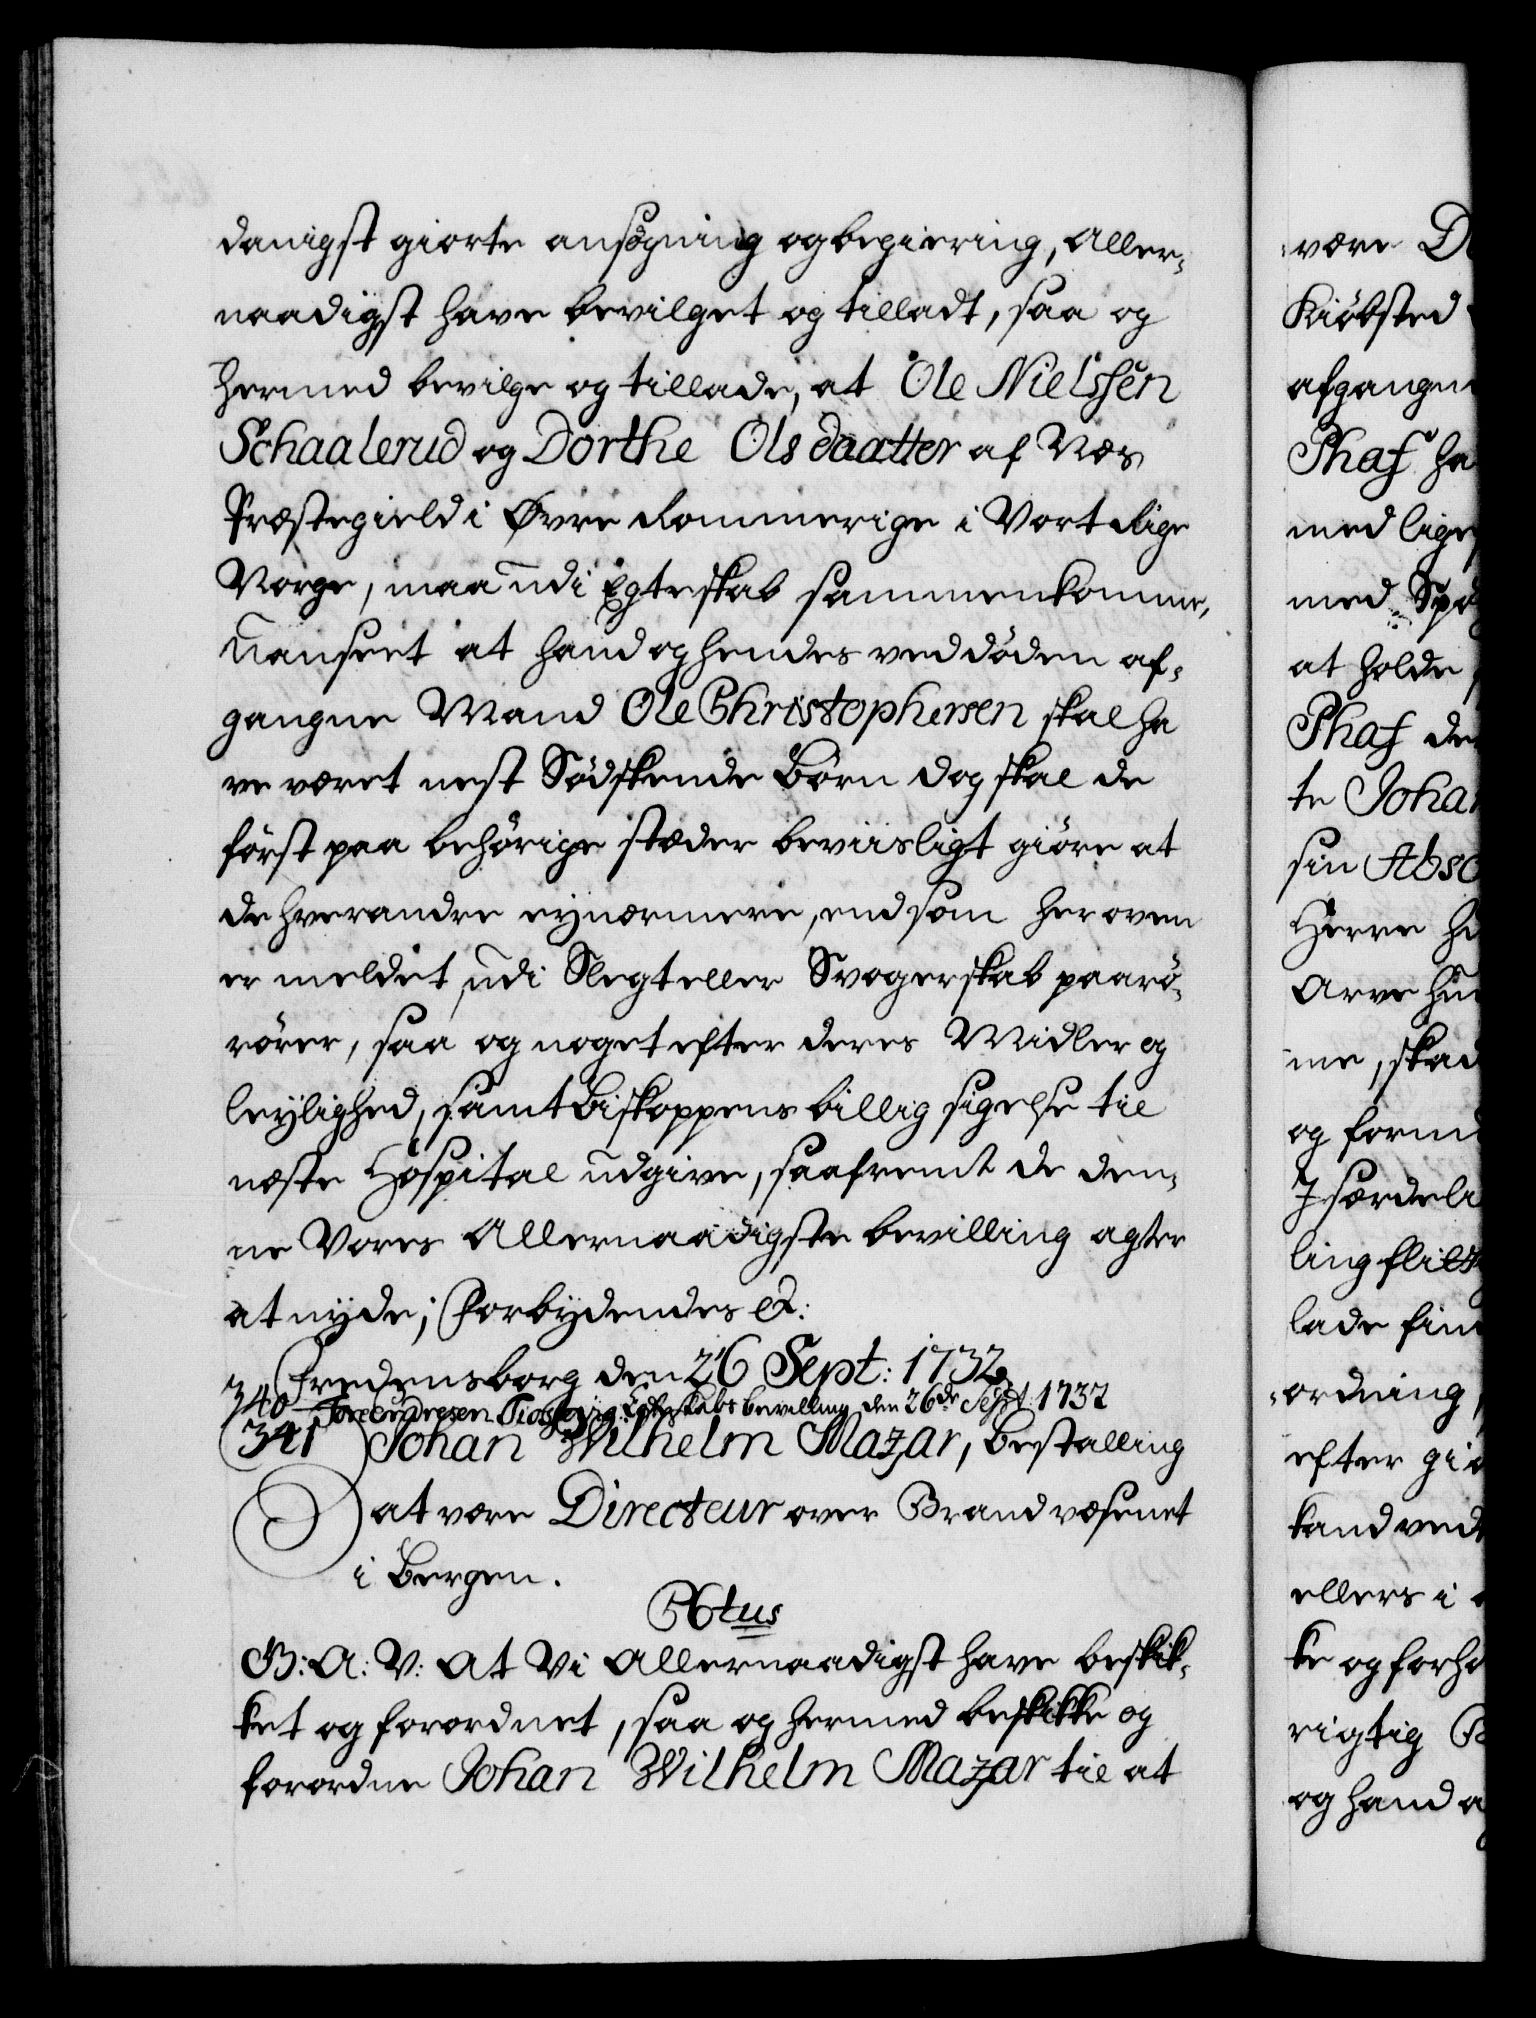 danigst giorte ansøgning og begiering, Aller-
naadigst have bevilget og tilladt, saa og
hermed bevilge og tillade, at Ole Nielssen
Schaalerud og Dorthe Olsdaatter af Næs
Præstegield i Øvre Rommerige i Vort Rige
Norge, maa udi Egteskab sammenkomme,
uanseet at hand og hendes ved døden af-
gangne Mand Ole Christophersen skal ha
ve været nest Sødskende Børn dog skal de
først paa behørige stæder beviisligt giøre at
de hverandre ey nærmere, end som her oven
er meldet, udi Slegt eller Svogerskab paarø-
rører, saa og noget efter deres Midler og
leylighed, samt Biskoppens billig sigelse til
næste Hospital udgive, saafremt de den-
ne Vores Allernaadigste bevilling agter
at nyde; Forbydendes &:
Fredensborg den 26 Sept: 1732
340 Egteskabs bevilling den 26de Sept. 1732
341 Johan Wilhelm Mazar, Bestalling
at være Directeur over Brandvæsenet
i Bergen.
C6tus
G: A: V: At Vi Allernaadigst have beskik-
ket og forordnet, saa og hermed beskikke og
forordne Johan Wilhelm Mazar til at
være
Kiøbsted
afgangne
Phaf ha
med lige
med
at holde
Phaf
te Johan
sin
Herre
Arve
me, skad
og
J særdeli
ling
lade
ordning
efter
kand ved
ellers i
ke og forh
rigtig
og hand